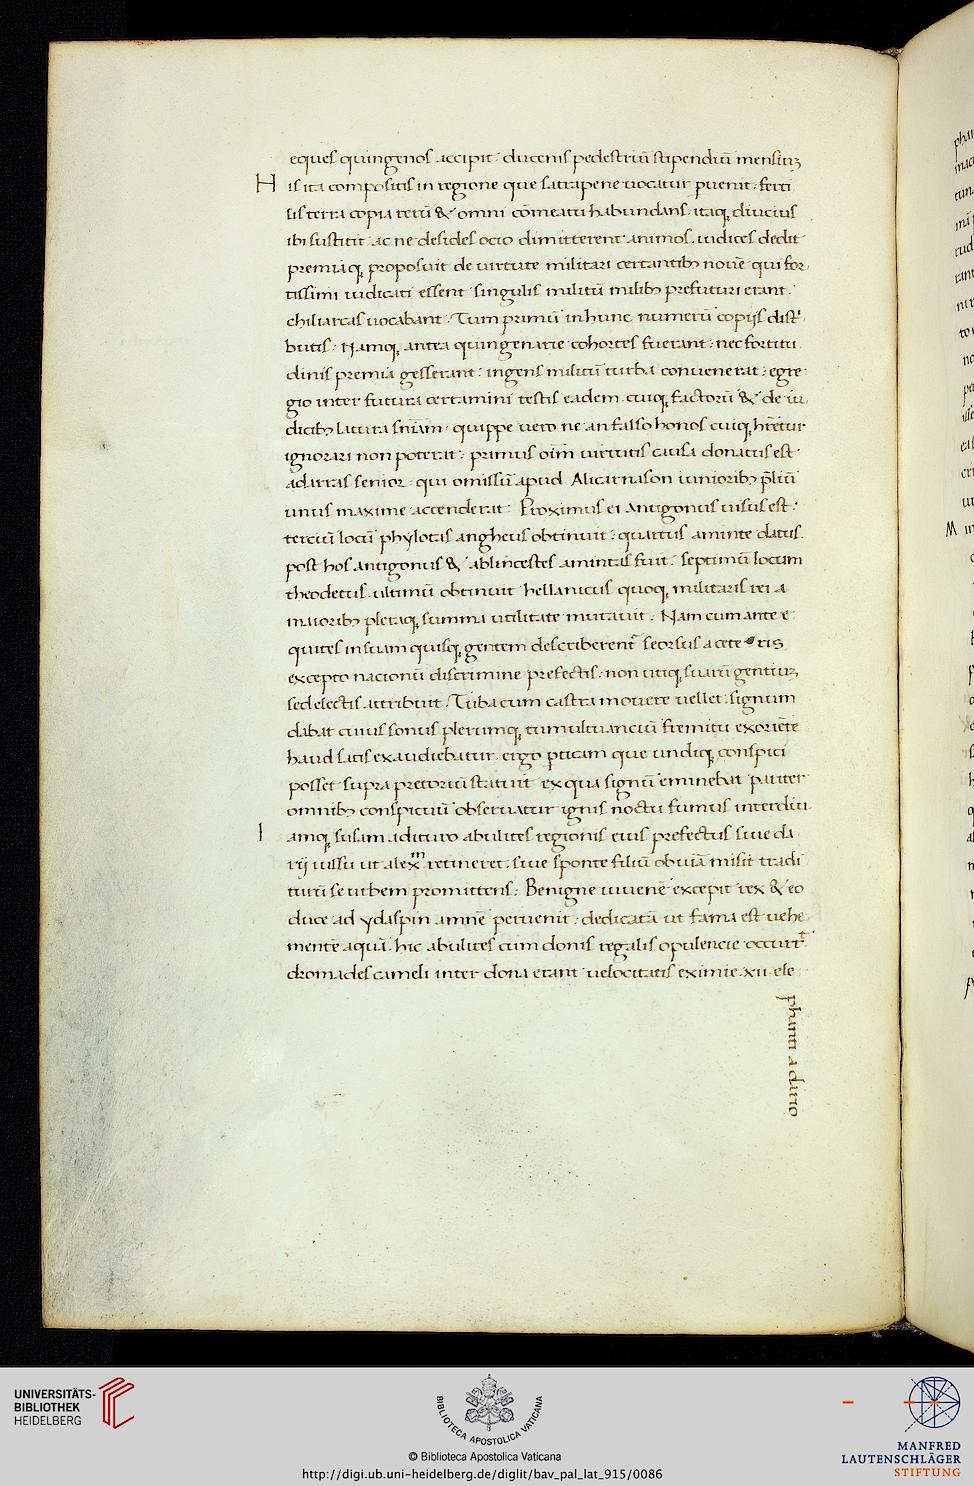 eques quingenos accipit · ducenis pedestriū stipendiū mensiuꝫ
H is ita compositis in regione que satrapene uocatur ꝑuenit · ferti
lis terra copia rerū & omni cōmeatu habundans · itaqꝫ diucius
ibi sustitit · ac ne desides ocio dimitterent animos · iudices dedit
premiaqꝫ proposuit de uirtute militari certantibꝫ noue qui for
tissimi iudicati essent singulis militū milibꝫ prefuturi erant ·
chiliarcas uocabant · Tum primū in hunc numerū copijs dist'
butis · Namqꝫ antea quingenarie cohortes fuerant · nec fortitu
dinis premia gesserant · ingens militū turba conuenerat · egre
gio inter futura certamini testis eadem cuiqꝫ factorū & de iu
dicibꝫ latura sniam · quippe uero ne an falso honos cuiqꝫ hretur
ignorari non poterat · primus oim uirtutis causa donatus est
adarras senior · qui omissū apud Alicarnason iunioribꝫ pliū
unus maxime accenderat · Proximus ei Antigonus uisus est ·
terciū locū phylotas angheus obtinuit · quartus aminte datus
post hos antigonus & ablincestes amintas fuit · septimū locum
theodetus · ultimū obtinuit hellanicus quoqꝫ militaris rei a
maioribꝫ pleraqꝫ summa utilitate mutauit · Nam cum ante e
quites in suam quisqꝫ gentem describerent seorsus a cete ris
excepto nacionū discrimine prefectis · non utiqꝫ suarū gentiuꝫ
sed electis attribuit · Tuba cum castra mouere uellet · signum
dabat cuius sonus plerumqꝫ tumultuanciū fremitu exoriēte
haud satis exaudiebatur · ergo ꝑticam que undiqꝫ conspici
posset supra pretoriū statuit ex qua signū eminebat pariter
omnibꝫ conspicuū obseruatur ignis noctu fumus interdiu
I amqꝫ susam adituro abulites regionis eius prefectus siue da
rij iussu ut alexm retineret · siue sponte filiū obuiā misit tradi
turū se urbem promittens · Benigne iuuenē excepit rex & eo
duce ad ydaspin amnē peruenit · dedicatā ut fama est uehe
mente aquā · hic abulites cum donis regalis opulencie occurrt
dromades cameli inter dona erant uelocitatis eximie · xii · ele
phanti a dario
UNIVERSITÄTS-
BIBLIOTHEK
HEIDELBERG
BIBLIOTECA APOSTOLICA VATICANA
© Biblioteca Apostolica Vaticana
http://digi.ub.uni-heidelberg.de/diglit/bav_pal_lat_915/0086
MANFRED
LAUTENSCHLÄGER
STIFTUNG